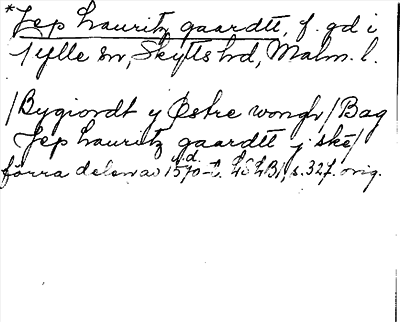 *Jep Lauritz gaardtt, f. gd i
Tylle sn, Skytts hd, Malm. l.
/Bygiordt y Østre wongh/Bag
Jep Lauritz gaardtt j skè/
förra delen av 1570-t. LSLB, s. 327. orig.
u.d.